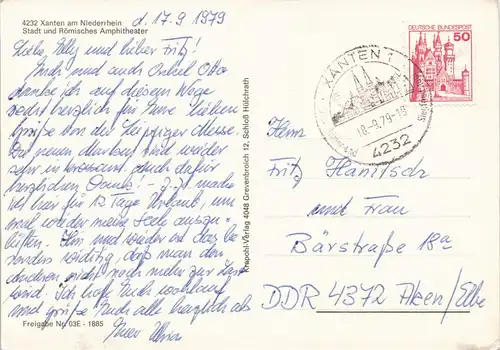 4232 Xanten am Niederrhein
Stadt und Römisches Amphitheater
d. 17.9.1979
Liebe Elly und lieber Fritz!
Euch und auch Onkel Otto
danke ich auf diesem Wege
recht herzlich für Eure lieben
Grüße von der Leipziger Messe.
Die neuen Marken sind wieder
sehr interessant, auch dafür
herzlichen Dank! - Z. Z. mache
ich hier für 12 Tage Urlaub, um
mal wieder meine Seele auszu-
lüften. Hin und wieder ist das be
sonders wichtig, daß man den
anderen nicht noch mehr zur Last
wird. Ich hoffe Euch wohlauf
und grüße Euch alle herzlich als
Euer
Freigabe Nr. 03E - 1885
Krapohl-Verlag 4048 Grevenbroich 12, Schloß Hülchrath
XANTEN 1
18.-9.79-18
4232
DEUTSCHE BUNDESPOST
50
Herrn
Fritz Hanitsch
und Frau
Bärstraße 18a
DDR 4372 Aken/Elbe